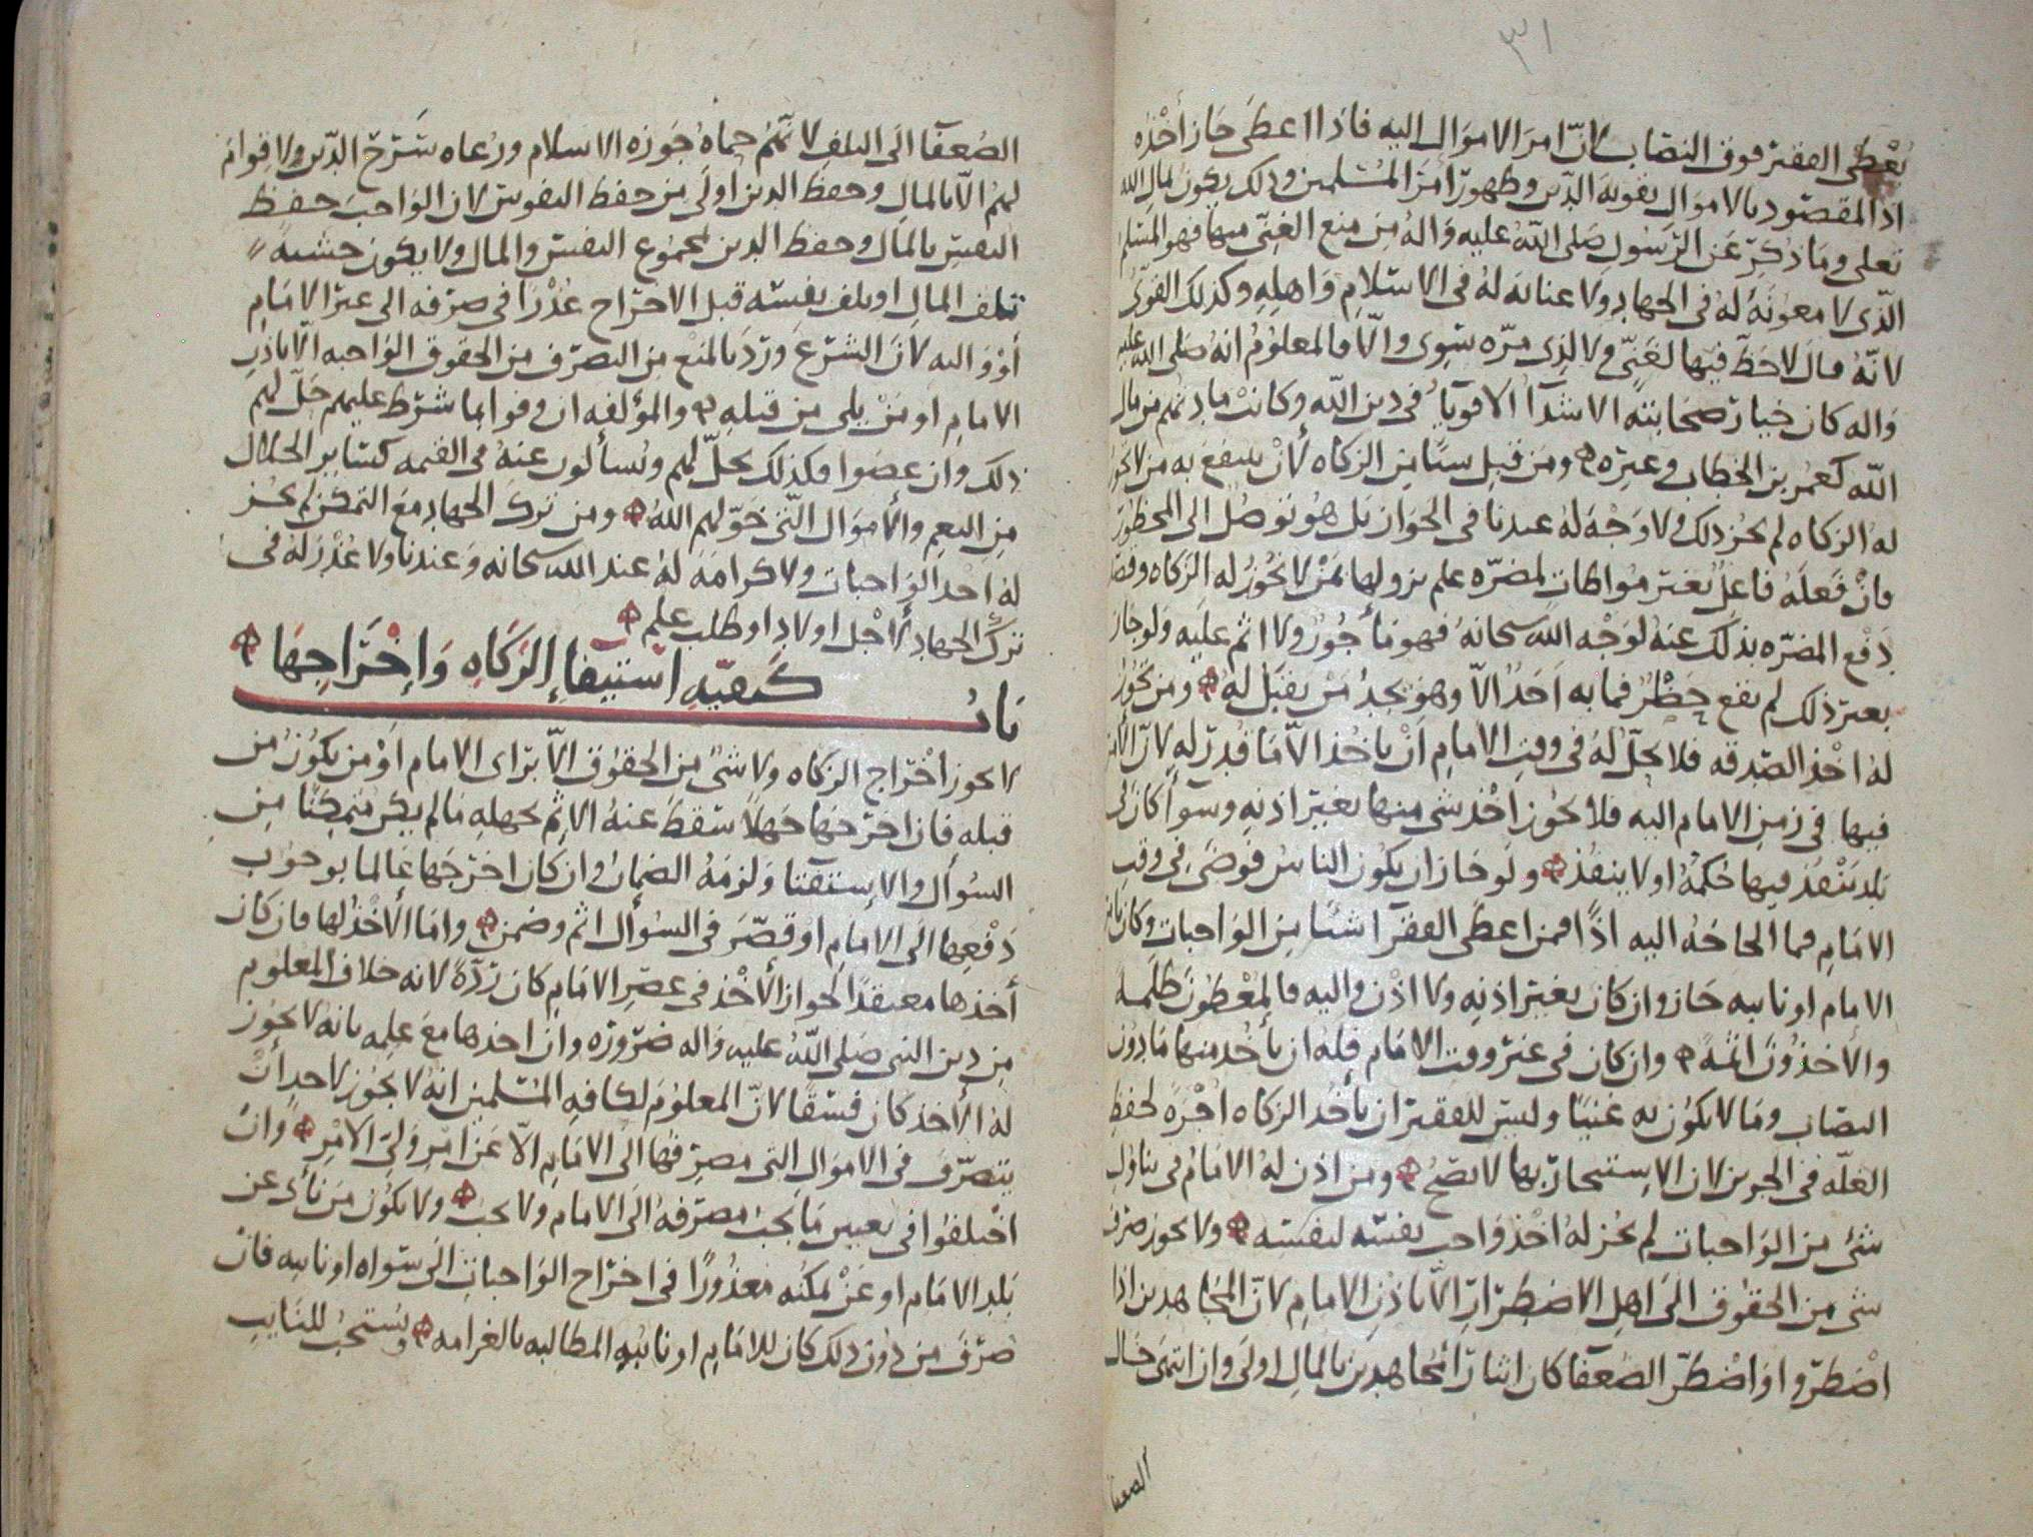 ٣١
يعطى الفقير فوق النصاب لانّ امر الاموال اليه فاذا اعطى جاز أخذه
اذ المقصود بالاموال تقوية الدّين وظهور امر المسلمين وذلك يكون لمال الله
تعلى وما ذكر عن الرسول صلى الله عليه واله من منع الغنى منها فهو المسلم
الّذى لا معونة له فى الجهاد ولا عناية له فى الاسلام واهله وكذلك القوىّ
لانّه قال لا حظّ فيها لغنىّ ولا لذى مرّه سوى والّا فالمعلوم انه صلى الله عليه
واله كان خيار صحابته الاشدآء الاقويآء فى دين الله وكانت مادتهم من مال
الله كعمر بن الخطاب وغيره ومن قبل شيئا من الزكاه لأن ينتفع به من لا تجوز
له الزكاه لم يجز ذلك ولا وجه له عندنا فى الجواز بل هو توصّل الى المحظور
فان فعله فاعل بغير مواطاة لمضرّه علم نزولها بمن لا تجوز له الزكاه وقصد
دفع المضرّه بذلك عنه لوجه الله سبحانه فهو مأجور ولا اثم عليه ولو جاز
بغير ذلك لم يقع حظر فما به احد الّا وهو يجد من يقبل له ومن تجوز
له اخذ الصدقه فلا يحلّ له فى وقت الامام أن ياخذ الّا ما قدر له لانّ الأمر
فيها فى زمن الامام اليه فلا يجوز اخذ شى منها بغير اذنه وسوآ كان فى
بلد ينفذ فيها حكمه او لا ينفذ ولو جاز ان يكون الناس فوضى فى وقت
الامام فما الحاجه اليه اذًا فمن اعطى الفقرا شيئا من الواجبات وكان باذن
الامام او نايبه جاز وان كان بغير اذنه ولا اذن واليه فالمعطون ظلمه
والآخذون اثمه وان كان فى غير وقت الامام فله ان يأخذ منها مادون
النصاب وما لا يكون به غنيًا وليس للفقير ان يأخذ الزكاه اجره لحفظ
الغلّه فى الجرين لان الاستيجار بها لا يصحّ ومن اذن له الامام فى تناول
شئ من الواجبات لم يجز له اخذ واجب نفسه لنفسه ولا يجوز صرف
شى من الحقوق الى اهل الاضطرار الّا باذن الامام لانّ المجاهدين اذا
اضطرّوا واضطرّ الضعفا كان ايثار المجاهدين بالمال اولى وان انتهى حال
الضعفا
الضعفآ الى التلف لانّهم حماه حوزه الاسلام ورعاه سرح الدّين ولا قوام
لهم الّا بالمال وحفظ الدين اولى من حفظ النفوس لان الواجب حفظ
النفس بالمال وحفظ الدين بمجموع النفس والمال ولا يكون خشية
تلف المال او تلف نفسه قبل الاخراج عذرًا فى صرفه الى غير الامام
أو واليه لانّ الشرع ورد بالمنع من التصرّف من الحقوق الواجبه الّا باذن
الامام او من يلى من قبله والمؤلفه ان وفوا بما شرط عليهم حلّ لهم
ذلك وان عصوا فكذلك يحلّ لهم ويُسألون عنه فى القيمه كساير الحلال
من النعم والأموال الّتى خوّلهم الله ومن ترك الجهاد مع التمكن لم يجز
له اخذ الواجبات ولا كرامة له عند الله سبحانه وعندنا ولا عذر له فى
ترك الجهاد لأجل اولاد او طلب علم
باب كيفيّه استيفآء الزكاه وإخراجها
لا يجوز اخراج الزكاه ولا شئ من الحقوق الّا براى الامام أو من يكون من
قبله فاذا اخرجها جهلًا سقط عنه الاثم بجهله مالم يكن متمكنًا من
السؤال والاستفتا ولزمه الضمان وان كان اخرجها عالما بوجوب
دفعها الى الامام او قصّر فى السؤال اثم وضمن وامّا الأخذ لها فان كان
أخذها معتقدًا لجواز الأخذ فى عصر الامام كان ردّة لانه خلاف المعلوم
من دين النبى صلى الله عليه واله ضروره وان اخذها مع علمه بانه لا يجوز
له الأخذ كان فسقا لانّ المعلوم لكافه المسلمين انه لا يجوز لاحد ان
يتصرّف فى الاموال التى مصرفها الى الامام الّا عن امر ولى الامر وان
اختلفوا فى تعيين ما يجب مصرفه الى الامام ولا يجب ولا يكون من نأى عن
بلد الامام او عن يمكنه معذورًا فى اخراج الواجبات الى سواه او نايبه فان
صرف من دون ذلك كان للامام او نايبه المطالبه بالغرامه ويستحبّ للنايب